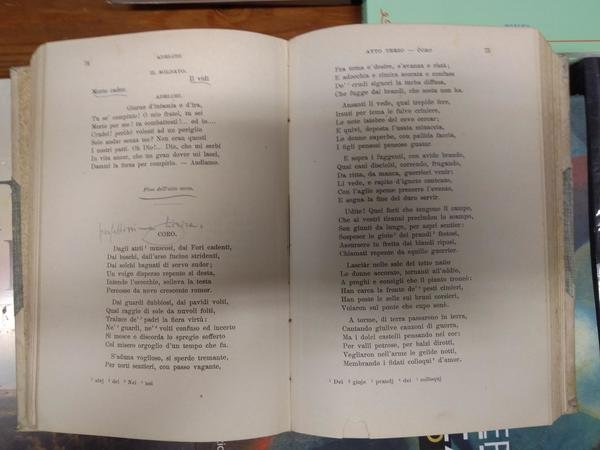 ADELCHI.
IL SOLDATO.
Il vidi
Morto cader.
ADELCHI.
Giorno d'infamia e d'ira,
Tu se' compiuto! O mio fratel, tu sei
Morto per me! tu combattesti!... ed io....
Crudel! perchè volesti ad un periglio
Solo andar senza me? Non eran questi
I nostri patti. Oh Dio!... Dio, che mi serbi
In vita ancor, che un gran dover mi lasci,
Dammi la forza per compirlo. — Andiamo.
Fine dell'atto terzo.
CORO.
Dagli atrii¹ muscosi, dai Fori cadenti,
Dai boschi, dall'arse fucine stridenti,
Dai solchi bagnati di servo sudor,
Un volgo disperso repente si desta,
Intende l'orecchio, solleva la testa
Percosso da novo crescente romor.
Dai guardi dubbiosi, dai pavidi volti,
Qual raggio di sole da nuvoli folti,
Traluce de'² padri la fiera virtù:
Ne'³ guardi, ne'⁴ volti confuso ed incerto
Si mesce e discorda lo spregio sofferto
Col misero orgoglio d'un tempo che fu.
S'aduna voglioso, si sperde tremante,
Per torti sentieri, con passo vagante,
¹ atrj ² dei ³ Nei ⁴ nei
ATTO TERZO — CORO 75
Fra tema e desire, s'avanza e ristà;
E adocchia e rimira scorata e confusa
De'¹ crudi signori la turba diffusa,
Che fugge dai brandi, che sosta non ha.
Ansanti li vede, quai trepide fere,
Irsuti per tema le fulve criniere,
Le note latebre del covo cercar;
E quivi, deposta l'usata minaccia,
Le donne superbe, con pallida faccia,
I figli pensosi pensose guatar.
E sopra i fuggenti, con avido brando,
Quai cani disciolti, correndo, frugando,
Da ritta, da manca, guerrieri venir:
Li vede, e rapito d'ignoto contento,
Con l'agile speme precorre l'evento,
E sogna la fine del duro servir.
Udite! Quei forti che tengono il campo,
Che ai vostri tiranni precludon lo scampo,
Son giunti da lunge, per aspri sentier:
Sospeser le gioie² dei prandi³ festosi,
Assursero in fretta dai blandi riposi,
Chiamati repente da squillo guerrier.
Lasciâr nelle sale del tetto natio
Le donne accorate, tornanti all'addio,
A preghi e consigli che il pianto troncò:
Han carca la fronte de'⁴ pesti cimieri,
Han poste le selle sui bruni corsieri,
Volaron sul ponte che cupo sonò.
A torme, di terra passarono in terra,
Cantando giulive canzoni di guerra,
Ma i dolci castelli pensando nel cor:
Per valli petrose, per balzi dirotti,
Vegliaron nell'arme le gelide notti,
Membrando i fidati colloqui⁵ d'amor.
¹ Dei ² gioje ³ prandj ⁴ dei ⁵ colloquj